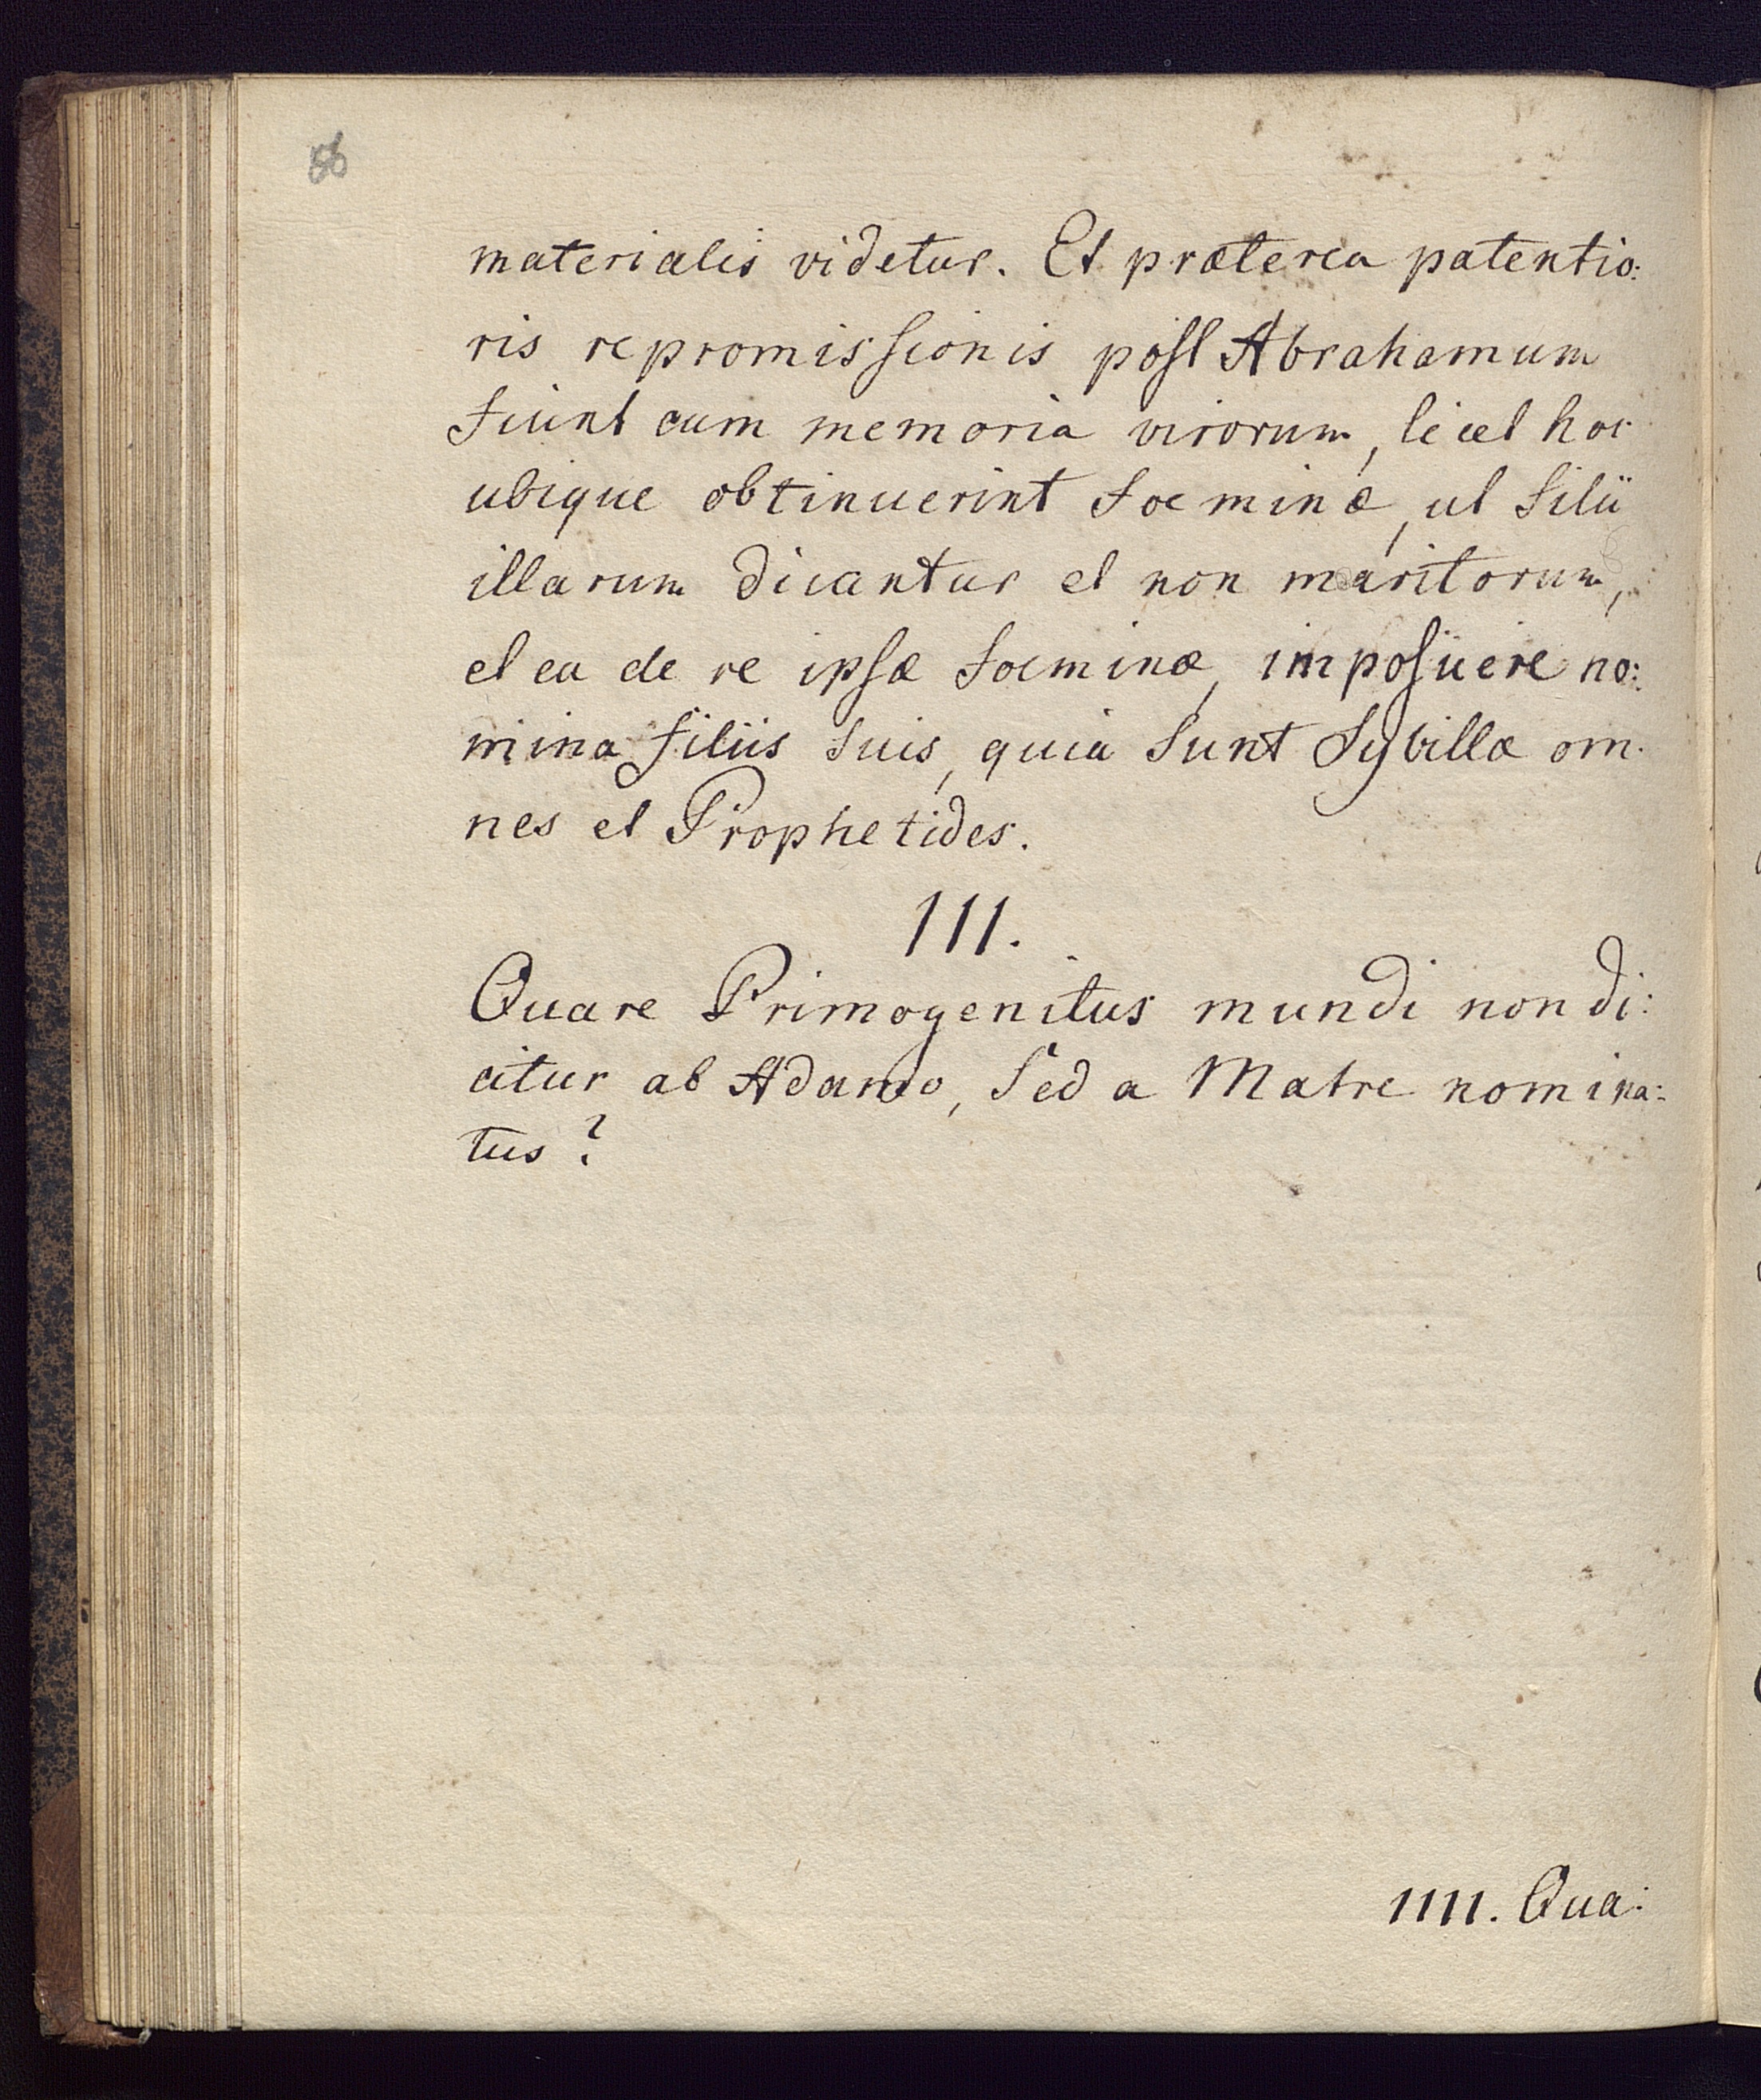 86
materialis videtur. Et præterea patentio:
ris repromissionis post Abrahamum
fiunt cum memoria virorum, licet hoc
ubique obtinuerint foeminæ, ut filii
illarum dicantur et non maritorum,
et ea de re ipsæ foeminæ, imposuere no:
mina filiis suis, quia sunt Sybillæ om:
nes et Prophetides.
III.
Quare Primogenitus mundi non di:
citur ab Adamo, sed a Matre nomina:
tus?
IIII. Qua: